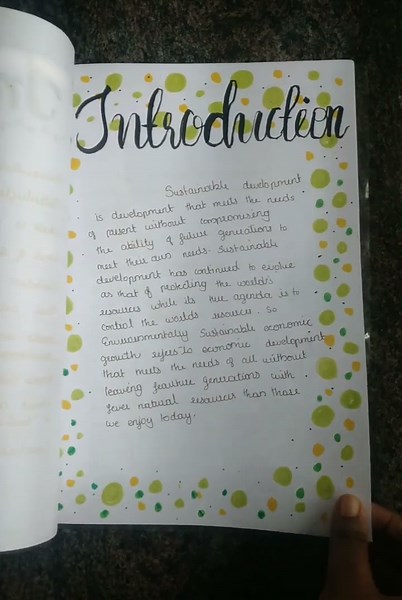 Introduction
Sustainable development
is development that meets the needs
of present without compromising
the ability of future generations to
meet their own needs. Sustainable
development has continued to evolve
as that of protecting the world's
resources while its true agenda is to
control the worlds resources. So
Environmentally Sustainable economic
growth refers to economic development
that meets the needs of all without
leaving feauture generations with
fewer natural resources than those
we enjoy today.